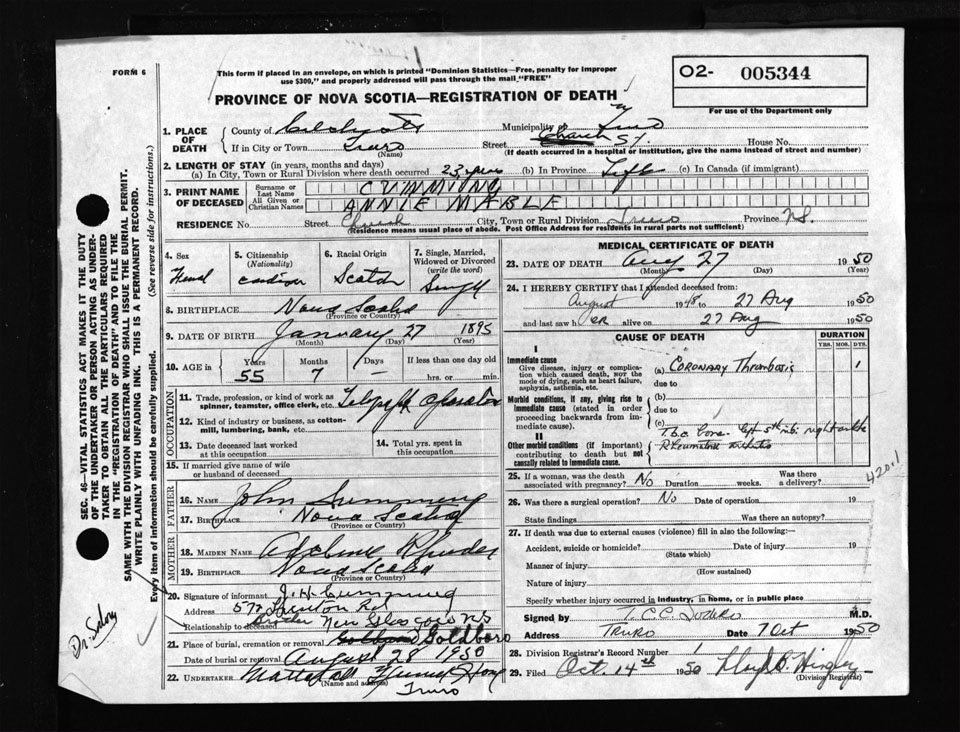 FORM 6
This form if placed in an envelope, on which is printed "Dominion Statistics—Free, penalty for improper
use $300," and properly addressed will pass through the mail "FREE"
O2- 005344
For use of the Department only
PROVINCE OF NOVA SCOTIA—REGISTRATION OF DEATH
1. PLACE OF DEATH
County of Colchester Municipality of Truro
If in City or Town Truro Street Church St House No.
(Name) (If death occurred in a hospital or institution, give the name instead of street and number)
2. LENGTH OF STAY (in years, months and days)
(a) In City, Town or Rural Division where death occurred 23 yrs (b) In Province Life (c) In Canada (if immigrant)
3. PRINT NAME OF DECEASED
Surname or Last Name CUMMING
All Given or Christian Names ANNIE MABLE
RESIDENCE No. Street Church City, Town or Rural Division Truro Province N.S.
(Residence means usual place of abode. Post Office Address for residents in rural parts not sufficient)
4. Sex
5. Citizenship (Nationality)
6. Racial Origin Scotch
7. Single, Married, Widowed or Divorced (write the word) Single
8. BIRTHPLACE Nova Scotia
(Province or Country)
9. DATE OF BIRTH January 27 1895
(Month) (Day) (Year)
10. AGE in Years Months Days If less than one day old
55 7 — hrs. or min.
OCCUPATION
11. Trade, profession, or kind of work as spinner, teamster, office clerk, etc. Telegraph Operator
12. Kind of industry or business, as cotton-mill, lumbering, bank, etc.
13. Date deceased last worked at this occupation
14. Total yrs. spent in this occupation
15. If married give name of wife or husband of deceased
FATHER
16. NAME John Cumming
17. BIRTHPLACE Nova Scotia
(Province or Country)
MOTHER
18. MAIDEN NAME Rhude
19. BIRTHPLACE Nova Scotia
(Province or Country)
20. Signature of informant J. H. Cumming
Address 572 Rd
Relationship to deceased Brother New Glasgow NS
21. Place of burial, cremation or removal Goldboro
Date of burial or removal August 28 1950
22. UNDERTAKER Mattatall Home
(Name and address) Truro
MEDICAL CERTIFICATE OF DEATH
23. DATE OF DEATH Aug 27 1950
(Month) (Day) (Year)
24. I HEREBY CERTIFY that I attended deceased from:
August 1948 to 27 Aug 1950
and last saw her alive on 27 Aug 1950
CAUSE OF DEATH
DURATION
YRS. MOS. DYS.
I
Immediate cause
Give disease, injury or complication which caused death, NOT the mode of dying, such as heart failure, asphyxia, asthenia, etc.
(a) Coronary Thrombosis 1
due to
Morbid conditions, if any, giving rise to immediate cause (stated in order proceeding backwards from immediate cause).
(b)
due to
(c)
II
Other morbid conditions (if important) contributing to death but not causally related to immediate cause.
Rheumatic arthritis
420.1
25. If a woman, was the death associated with pregnancy? No Duration weeks. Was there a delivery?
26. Was there a surgical operation? No Date of operation 19
State findings Was there an autopsy?
27. If death was due to external causes (violence) fill in also the following:
Accident, suicide or homicide? Date of injury 19
(State which)
Manner of injury
(How sustained)
Nature of injury
Specify whether injury occurred in industry, in home, or in public place
Signed by M.D.
Address Truro Date 7 Oct 1950
28. Division Registrar's Record Number 1
29. Filed Oct. 14th 1950 Lloyd B.
(Division Registrar)
SEC. 46—VITAL STATISTICS ACT MAKES IT THE DUTY
OF THE UNDERTAKER OR PERSON ACTING AS UNDER-
TAKER TO OBTAIN ALL THE PARTICULARS REQUIRED
IN THE "REGISTRATION OF DEATH" AND TO FILE THE
SAME WITH THE DIVISION REGISTRAR WHO SHALL ISSUE THE BURIAL PERMIT.
WRITE PLAINLY WITH UNFADING INK. THIS IS A PERMANENT RECORD.
Every item of information should be carefully supplied. (See reverse side for instructions.)